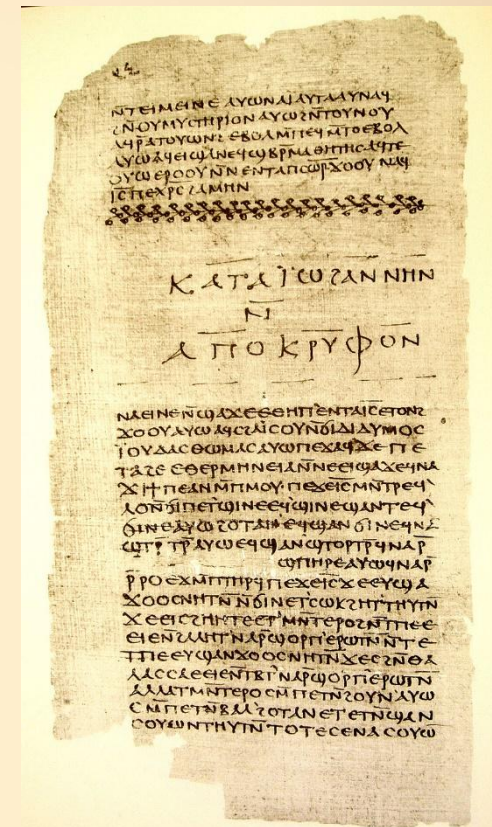 ⲛ̄ⲧⲉⲓⲙⲉⲓⲛⲉ ⲁⲩⲱ ⲛⲁⲓ ⲁⲩⲧⲁⲁⲩ ⲛⲁϥ
ϩⲛ̄ⲟⲩⲙⲩⲥⲧⲏⲣⲓⲟⲛ ⲁⲩⲱ ϩⲛ̄ⲧⲟⲩⲛⲟⲩ
ⲁϥⲣ̄ⲁⲧⲟⲩⲱⲛϩ ⲉⲃⲟⲗ ⲙ̄ⲡⲉϥⲙ̄ⲧⲟ ⲉⲃⲟⲗ
ⲁⲩⲱ ⲁϥⲉⲓ ϣⲁⲛⲉϥϣⲃⲣ̄ⲙⲁⲑⲏⲧⲏⲥ ⲁϥϫⲉ
ⲟⲩⲱ ⲉⲣⲟⲟⲩ ⲛ̄ⲛⲉⲛⲧⲁⲡⲥⲱ̄ⲣ̄ ϫⲟⲟⲩ ⲛⲁϥ
ⲓ̄ⲥ̄ ⲡⲉⲭ̄ⲣ̄ⲥ̄ ϩⲁⲙⲏⲛ
ⲕⲁⲧⲁ ⲓ̈ⲱϩⲁⲛⲛⲏⲛ
ⲛ̄
ⲁⲡⲟⲕⲣⲩⲫⲟⲛ
ⲛⲁⲉⲓ ⲛⲉ ⲛ̄ϣⲁϫⲉ ⲉⲑⲏⲡ ⲉⲛⲧⲁⲓ̄ⲥ̄ ⲉⲧⲟⲛϩ
ϫⲟⲟⲩ ⲁⲩⲱ ⲁϥⲥϩⲁⲓ̈ⲥⲟⲩ ⲛ̄ϭⲓ ⲇⲓⲇⲩⲙⲟⲥ
ⲓ̈ⲟⲩⲇⲁⲥ ⲑⲱⲙⲁⲥ ⲁⲩⲱ ⲡⲉϫⲁϥ ϫⲉ ⲡⲉ
ⲧⲁϩⲉ ⲉⲑⲉⲣⲙⲏⲛⲉⲓⲁ ⲛ̄ⲛⲉⲉⲓϣⲁϫⲉ ϥⲛⲁ
ϫⲓ ϯⲡⲉ ⲁⲛ ⲙ̄ⲡⲙⲟⲩ ⲡⲉϫⲉ ⲓ̄ⲥ̄ ⲙⲛ̄ⲧⲣⲉϥ
ⲗⲟ ⲛ̄ϭⲓ ⲡⲉⲧϣⲓⲛⲉ ⲉϥϣⲓⲛⲉ ϣⲁⲛⲧⲉϥ
ϭⲓⲛⲉ ⲁⲩⲱ ϩⲟⲧⲁⲛ ⲉϥϣⲁⲛϭⲓⲛⲉ ϥⲛⲁ
ϣⲧⲣ̄ⲧⲣ̄ ⲁⲩⲱ ⲉϥϣⲁⲛϣⲧⲟⲣⲧⲣ̄ ϥⲛⲁⲣ̄
ϣⲡⲏⲣⲉ ⲁⲩⲱ ϥⲛⲁⲣ̄
ⲣ̄ⲣⲟ ⲉϫⲙ̄ ⲡⲧⲏⲣϥ ⲡⲉϫⲉ ⲓ̄ⲥ̄ ϫⲉ ⲉⲩϣⲁ
ϫⲟⲟⲥ ⲛⲏⲧⲛ̄ ⲛ̄ϭⲓ ⲛⲉⲧⲥⲱⲕ ϩⲏⲧ ⲧⲏⲩⲧⲛ̄
ϫⲉ ⲉⲓⲥϩⲏⲏⲧⲉ ⲉⲧⲙⲛ̄ⲧⲉⲣⲟ ϩⲛ̄ ⲧⲡⲉ
ⲉⲉⲓⲉ ⲛ̄ϩⲁⲗⲏⲧ ⲛⲁⲣ̄ ϣⲟⲣⲡ ⲉⲣⲱⲧⲛ̄ ⲛ̄ⲧⲉ
ⲧⲡⲉ ⲉⲩϣⲁⲛϫⲟⲟⲥ ⲛⲏⲧⲛ̄ ϫⲉ ⲥϩⲛ̄ ⲑⲁ
ⲗⲁⲥⲥⲁ ⲉⲉⲓⲉ ⲛ̄ⲧⲃⲧ ⲛⲁⲣ̄ ϣⲟⲣⲡ ⲉⲣⲱⲧⲛ̄
ⲁⲗⲗⲁ ⲧⲙⲛ̄ⲧⲉⲣⲟ ⲥⲙ̄ⲡⲉⲧⲛ̄ϩⲟⲩⲛ ⲁⲩⲱ
ⲥⲙ̄ⲡⲉⲧⲛ̄ⲃⲁⲗ ϩⲟⲧⲁⲛ ⲉⲧⲉⲧⲛ̄ϣⲁⲛ
ⲥⲟⲩⲱⲛ ⲧⲏⲩⲧⲛ̄ ⲧⲟⲧⲉ ⲥⲉⲛⲁⲥⲟⲩⲱ